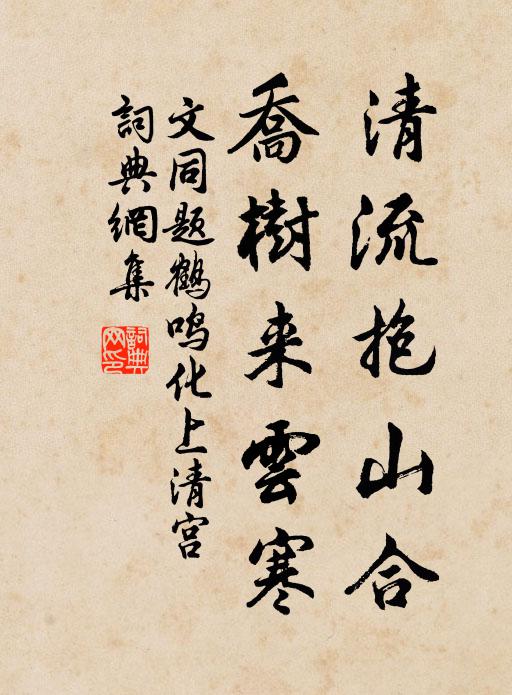 清流抱山合
喬樹来雲寒
文同题鶴鸣化上清宫
詞典網集
詞典网印